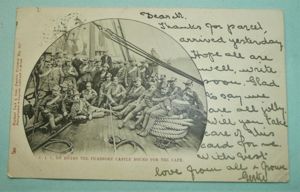 Dear M.
Thanks for parcel,
arrived yesterday
Hope all are
well, write
soon, Glad
to say we
are all jolly
Will you take
care of this
card for me
With best
love from all at Howe
C.I.V. ON BOARD THE PEMBROKE CASTLE BOUND FOR THE CAPE.